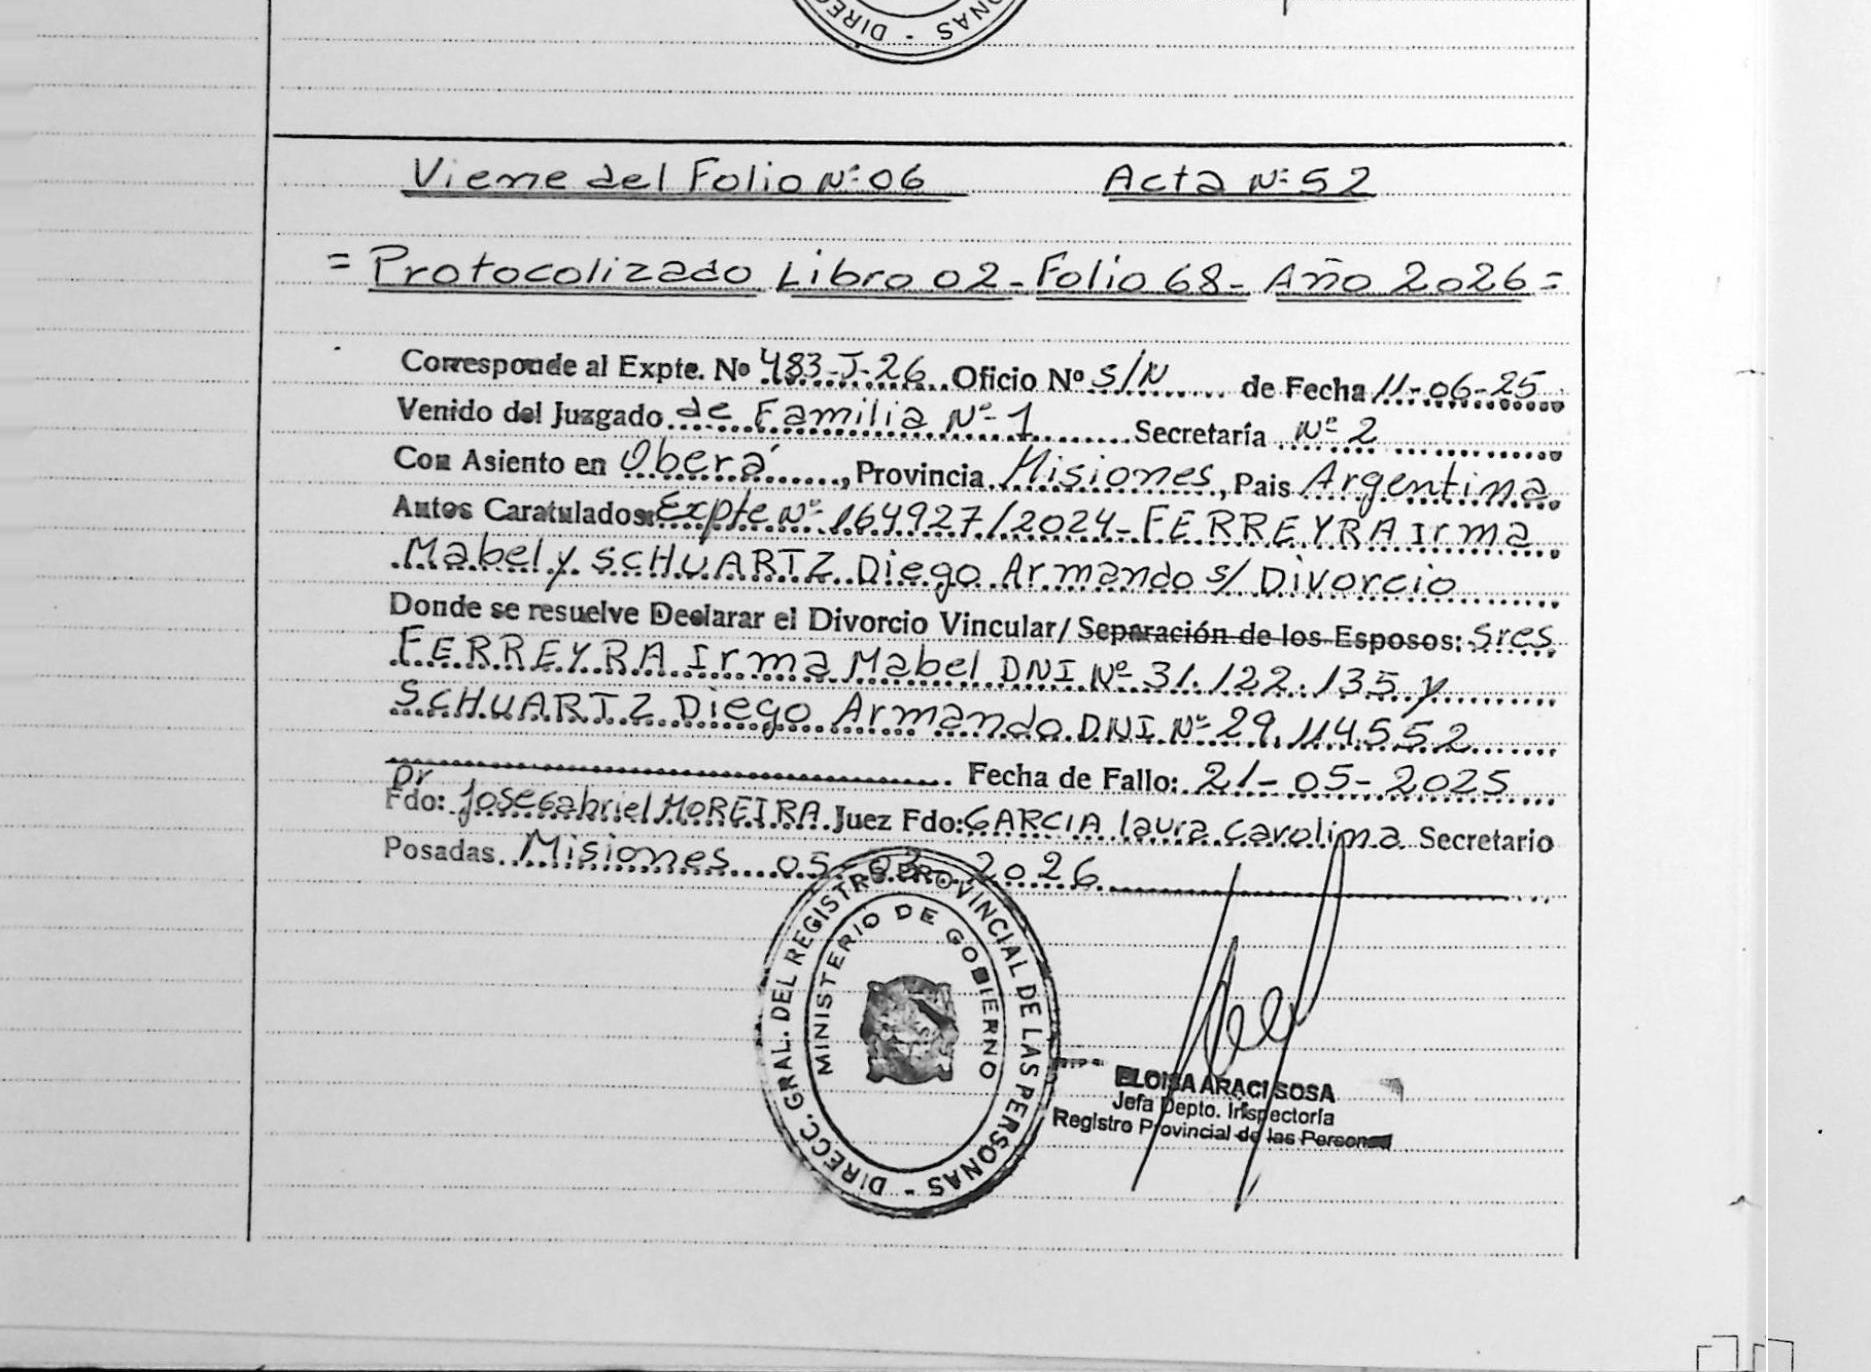 DIRE - SONAS
Viene del Folio Nº 06 Acta Nº 52
= Protocolizado Libro 02 - Folio 68 - Año 2026 =
Corresponde al Expte. Nº 483-J-26 Oficio Nº S/N de Fecha 11-06-25
Venido del Juzgado de Familia Nº 1 Secretaría Nº 2
Con Asiento en Oberá, Provincia Misiones, Pais Argentina
Autos Caratulados: Expte Nº 164927/2024 - FERREYRA Irma
Mabel y SCHUARTZ Diego Armando s/ Divorcio
Donde se resuelve Declarar el Divorcio Vincular/ Separación de los Esposos: Sres
FERREYRA Irma Mabel DNI Nº 31.122.135 y
SCHUARTZ Diego Armando DNI Nº 29.114.552
Fecha de Fallo: 21-05-2025
Dr
Fdo: Jose Gabriel MOREIRA Juez Fdo: GARCIA laura Carolina Secretario
Posadas Misiones 05- -2026
DIRECC. GRAL. DEL REGISTRO PROVINCIAL DE LAS PERSONAS -
MINISTERIO DE GOBIERNO
ELOISA ARACI SOSA
Jefa Depto. Inspectoría
Registro Provincial de las Personas